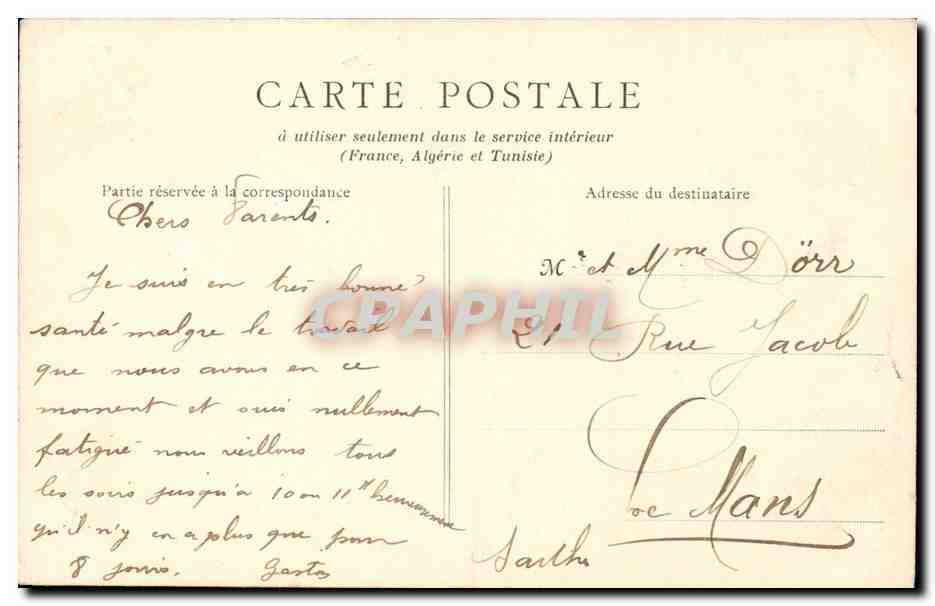 CARTE POSTALE
à utiliser seulement dans le service intérieur
(France, Algérie et Tunisie)
Partie réservée à la correspondance
Chers Parents.
Je suis en très bonne
santé malgre le travail
que nous avons en ce
moment et suis nullement
fatigué nous veillons tous
les soirs jusqu'a 10 ou 11h
qu'il n'y en a plus que pour
8 jours. Gaston
Adresse du destinataire
Mr et Mme Dörr
21 Rue Jacob
Le Mans
Sarthe
CPAPHIL